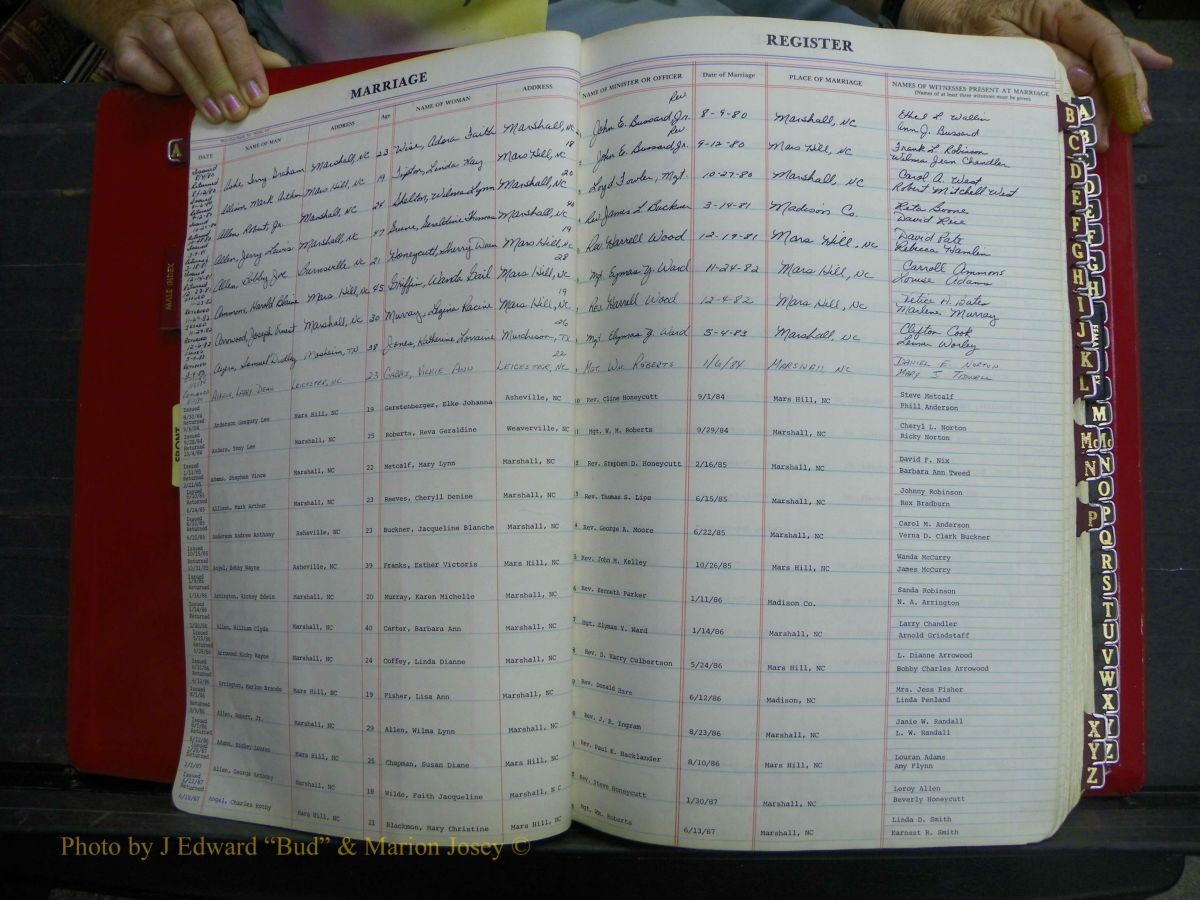 MARRIAGE
REGISTER
DATE NAME OF MAN ADDRESS Age NAME OF WOMAN ADDRESS NAME OF MINISTER OR OFFICER Date of Marriage PLACE OF MARRIAGE NAMES OF WITNESSES PRESENT AT MARRIAGE
(Names of at least three witnesses must be given)
Marshall, NC 23 Wise, Adora Faith Marshall, NC Rev John E. Bussard Jr. 8-9-80 Marshall, NC Ethel L. Wallin
Ann J. Bussard
Allison Mark Arthur Mars Hill, NC 19 Tipton, Linda Kay Mars Hill, NC 18 Rev John E. Bussard, Jr. 9-12-80 Mars Hill, NC Frank L. Robinson
Wilma Jean Chandler
Allen Robert, Jr. Marshall, NC 24 Shelton, Wilma Lynn Marshall, NC 20 Loyd Fowler, Mgt. 10-27-80 Marshall, NC Carol A. West
Robert Mitchell West
Allen, Jerry Lewis Marshall, NC 47 Marshall, NC Rev James L Buckner 3-14-81 Madison Co. Reta Boone
David Rice
Allen, Bobby Joe Burnsville, NC 21 Honeycutt, Sherry Dawn Mars Hill, NC 19 Rev Harrell Wood 12-19-81 Mars Hill, NC David Pate
Rebecca Hamlin
Ammons, Harold Blaine Mars Hill, NC 45 Griffin, Wanda Gail Mars Hill, NC 28 Mgt. Clymas Y. Ward 11-24-82 Mars Hill, NC Carroll Ammons
Louise Adams
Arrwood, Joseph Ernest Marshall, NC 20 Murray, Regina Racine Mars Hill, NC 19 Rev Harrell Wood 12-4-82 Mars Hill, NC
Marlene Murray
Samuel Dudley Mosheim, TN 38 Jones, Katherine Lorraine Murchison, TX 26 Mgt Clymas Y. Ward 5-4-83 Marshall, NC Clifton Cook
Leman Worley
LEICESTER, NC 23 VICKIE ANN LEICESTER, NC 22 MGT. WM. ROBERTS 1/6/84 MARSHALL NC DANIEL E. NORTON
MARY J TIDWELL
Anderson Gregory Lee Mars Hill, NC 19 Gerstenberger, Elke Johanna Asheville, NC Rev. Cline Honeycutt 9/1/84 Mars Hill, NC Steve Metcalf
Phill Anderson
Anders, Tony Lee Marshall, NC 25 Roberts, Reva Geraldine Weaverville, NC Mgt. W. M. Roberts 9/29/84 Marshall, NC Cheryl L. Norton
Ricky Norton
Adams, Stephen Vince Marshall, NC 22 Metcalf, Mary Lynn Marshall, NC Rev. Stephen D. Honeycutt 2/16/85 Marshall, NC David F. Nix
Barbara Ann Tweed
Allison, Mark Arthur Marshall, NC 23 Reeves, Cheryll Denise Marshall, NC Rev. Thomas S. Lipe 6/15/85 Marshall, NC Johnny Robinson
Rex Bradburn
Anderson Andrew Anthony Asheville, NC 23 Buckner, Jacqueline Blanche Marshall, NC Rev. George A. Moore 6/22/85 Marshall, NC Carol M. Anderson
Verna D. Clark Buckner
Angel, Bobby Wayne Asheville, NC 39 Franks, Esther Victoria Mars Hill, NC Rev. John M. Kelley 10/26/85 Mars Hill, NC Wanda McCurry
James McCurry
Arrington, Rickey Edwin Marshall, NC 20 Murray, Karen Michelle Mars Hill, NC Rev. Kenneth Parker 1/11/86 Madison Co. Sanda Robinson
N. A. Arrington
Allen, William Clyde Marshall, NC 40 Carter, Barbara Ann Marshall, NC Mgt. Clymas Y. Ward 1/14/86 Marshall, NC Larry Chandler
Arnold Grindstaff
Arrowood Ricky Wayne Marshall, NC 24 Coffey, Linda Dianne Marshall, NC Rev. D. Harry Culbertson 5/24/86 Mars Hill, NC L. Dianne Arrowood
Bobby Charles Arrowood
Arrington, Marlon Brando Mars Hill, NC 19 Fisher, Lisa Ann Marshall, NC Rev. Donald Hare 6/12/86 Madison, NC Mrs. Jess Fisher
Linda Penland
Allen, Robert, Jr. Marshall, NC 29 Allen, Wilma Lynn Marshall, NC Rev. J. B. Ingram 8/23/86 Marshall, NC Janie W. Randall
L. W. Randall
Mars Hill, NC 25 Chapman, Susan Diane Mars Hill, NC Rev. Paul K. Hacklander 8/10/86 Mars Hill, NC Louran Adams
Amy Flynn
Allen, George Anthony Marshall, NC 18 Wilde, Faith Jacqueline Marshall, N C Rev. Steve Honeycutt 1/30/87 Marshall, NC Leroy Allen
Beverly Honeycutt
Angel, Charles Mars Hill, NC 21 Blackmon, Mary Christine Mars Hill, NC Mgt. Wm. Roberts 6/13/87 Marshall, NC Linda D. Smith
Earnest R. Smith
MALE INDEX
FRONT
A
B C D E F G H I J K L M Mc N O P Q R S T U V W X Y Z
Photo by J Edward “Bud” & Marion Josey ©